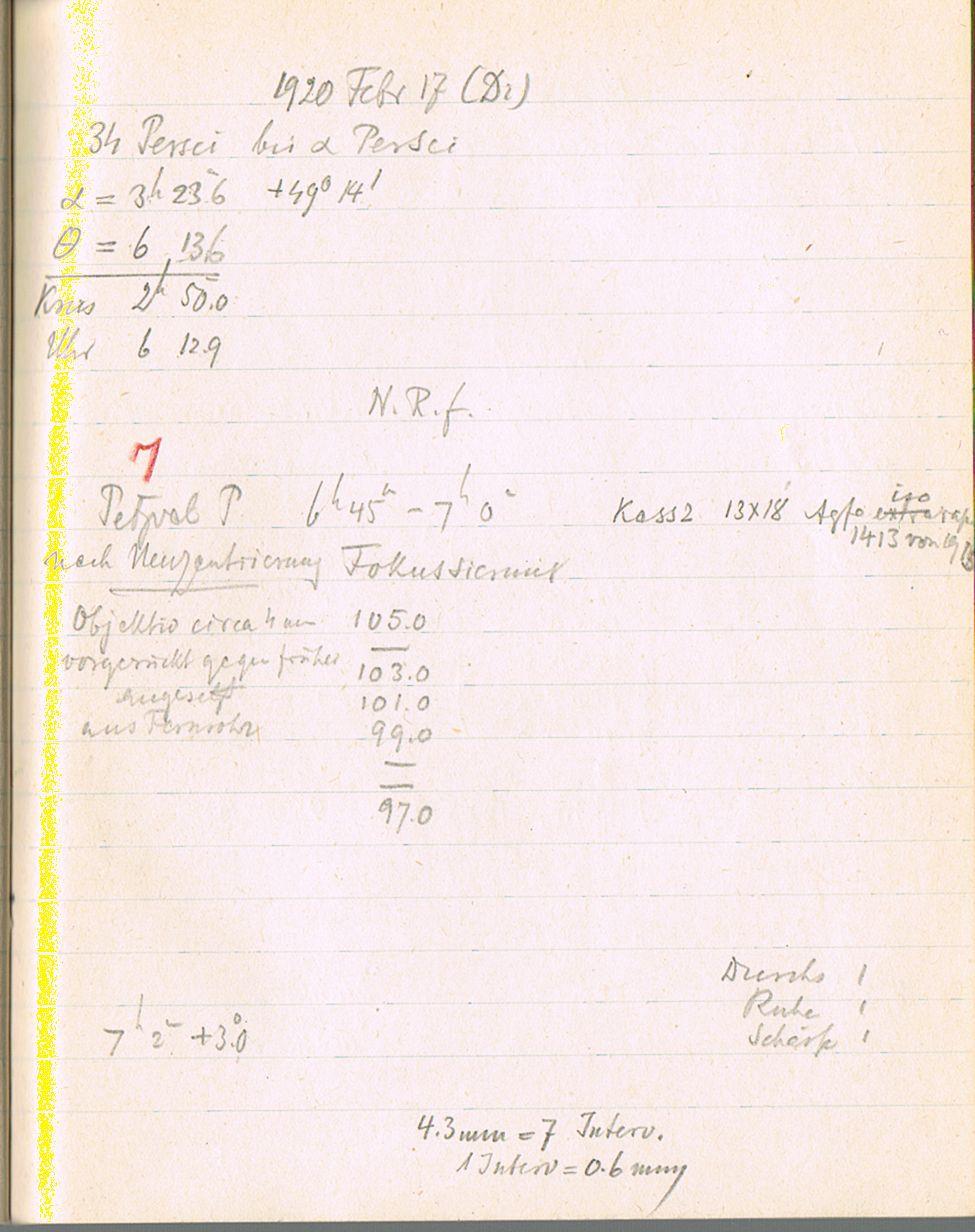 1920 Febr 17 (Di)
34 Persei bis α Persei
α = 3ʰ 23ᵐ6 +49° 14'
θ = 6 13.6
Kreis 2ʰ 50ᵐ.0
Uhr 6 12.9
N. R. f.
7
Petzval P 6ʰ 45ᵐ - 7ʰ 0ᵐ Kass 2 13x18 Agfa extra iso rap
1413 von 19
nach Neuzentrierung Fokussierung
Objektiv circa 4 mm 105.0
vorgerückt gegen früher 103.0
angesetzt 101.0
aus Fernrohr 99.0
97.0
Durchs 1
Ruhe 1
7ʰ 2ᵐ +3°.0 Schärfe 1
4.3 mm = 7 Interv.
1 Interv = 0.6 mm